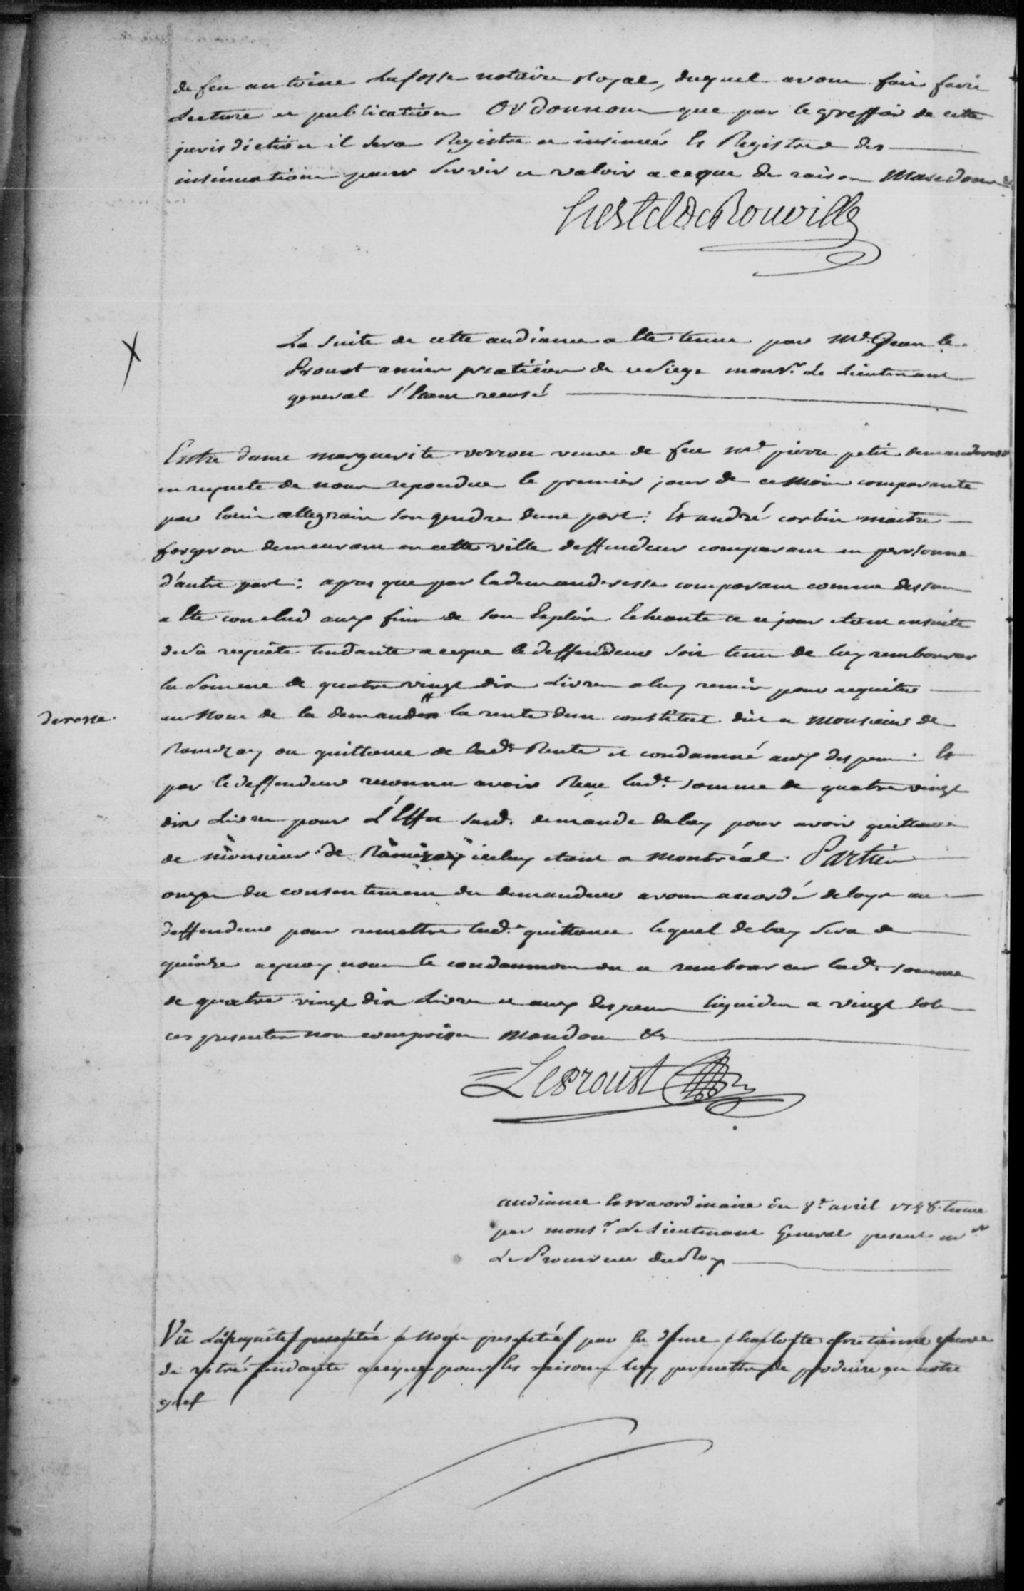 de feu antoine Lafosse notaire Royal, duquel avons fait faire
Lecture et publication ordonnons que par le greffier de cette
jurisdiction il sera Registré et insinué Es Registres des
insinuations pour servir et valoir a ce que de raison Mandons &
hertel de Rouville
La suite de cette audiance a Eté tenue par Me Jean le
Proust ancien praticien de ce siege monsr. Le Lieutenant
general s'Etant recusé
Entre dame marguerite veron veuve de feu mr pierre petit demanderesse
en requete de nous repondue le premier jour de ce mois comparante
par Louis allegrain son gendre d'une part: Et andré corbin maitre
forgeron demeurant en cette ville deffendeur comparant en personne
d'autre part: apres que par la demanderesse comparant comme dessus
a Eté conclud aux fins de son Exploit Echeante a ce jour Etant ensuite
de sa requête tendante a ce que le deffendeur soit tenu de luy rembourser
la somme de quatre vingt dix Livres a luy remis pour acquiter
au Nom de la demandsse la rente d'un constitut due a Monsieur de
Ramezay ou quittance de lade Rente et condamné aux depens. Et
par le deffendeur reconnu avoir Reçu lade somme de quatre vingt
dix Livres pour L'Effet susd. demande delay pour avoir quittance
de monsieur de Ramezay iceluy etant a Montréal. Parties
ouyes du consentement du demandeur avons accordé delays au
deffendeur pour remettre lade quittance lequel delay sera de
quinze a quoy nous le condamnons ou a rembourser lade somme
de quatre vingt dix Livres et aux depens liquidés a vingt sols
ces presentes non comprises Mandons &c
LeProust
audiance Extraordinaire du 8e avril 1748 tenue
par monsr. Le Lieutenant General present mr
Le Procureur du Roy
Vû La Requête presentée a Nous presentée par la dame charlotte chretienne veuve
de tendante a ce que pour les raisons luy permettre de produire au notre
gref